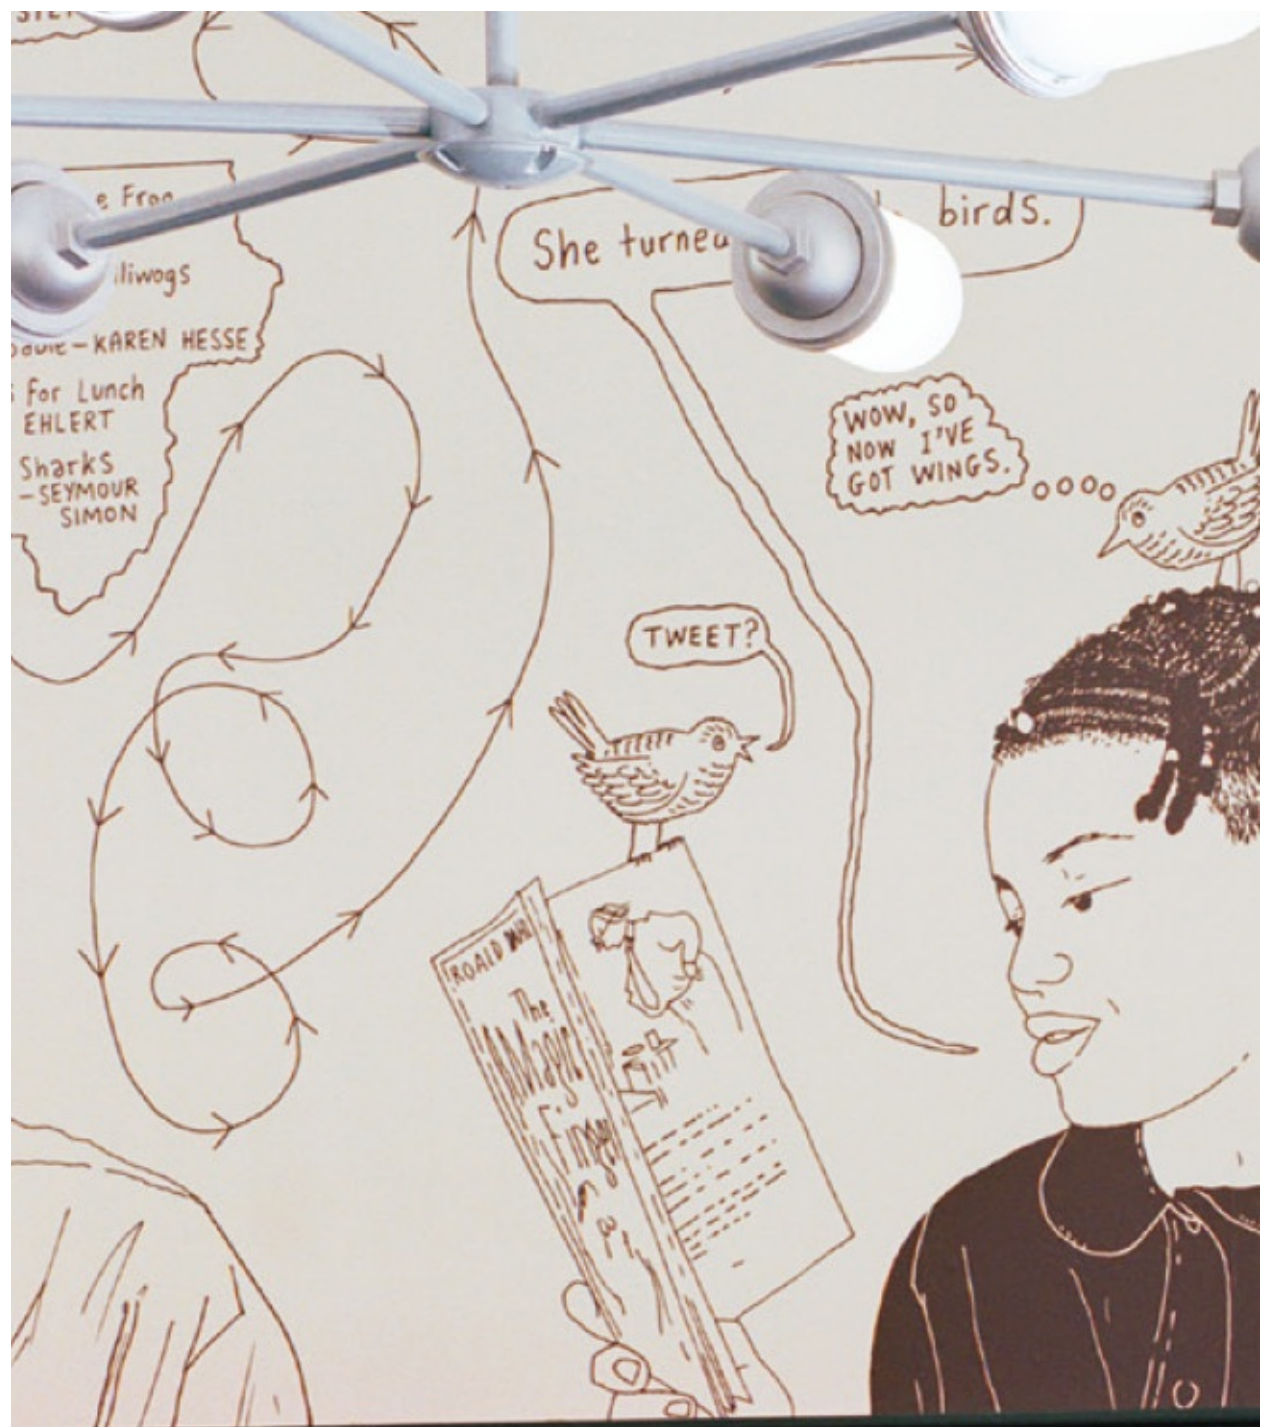 Frog
KAREN HESSE
for Lunch
EHLERT
Sharks
-SEYMOUR
SIMON
She turned birds.
WOW, SO
NOW I'VE
GOT WINGS.
TWEET?
ROALD
The
Magic
Finger